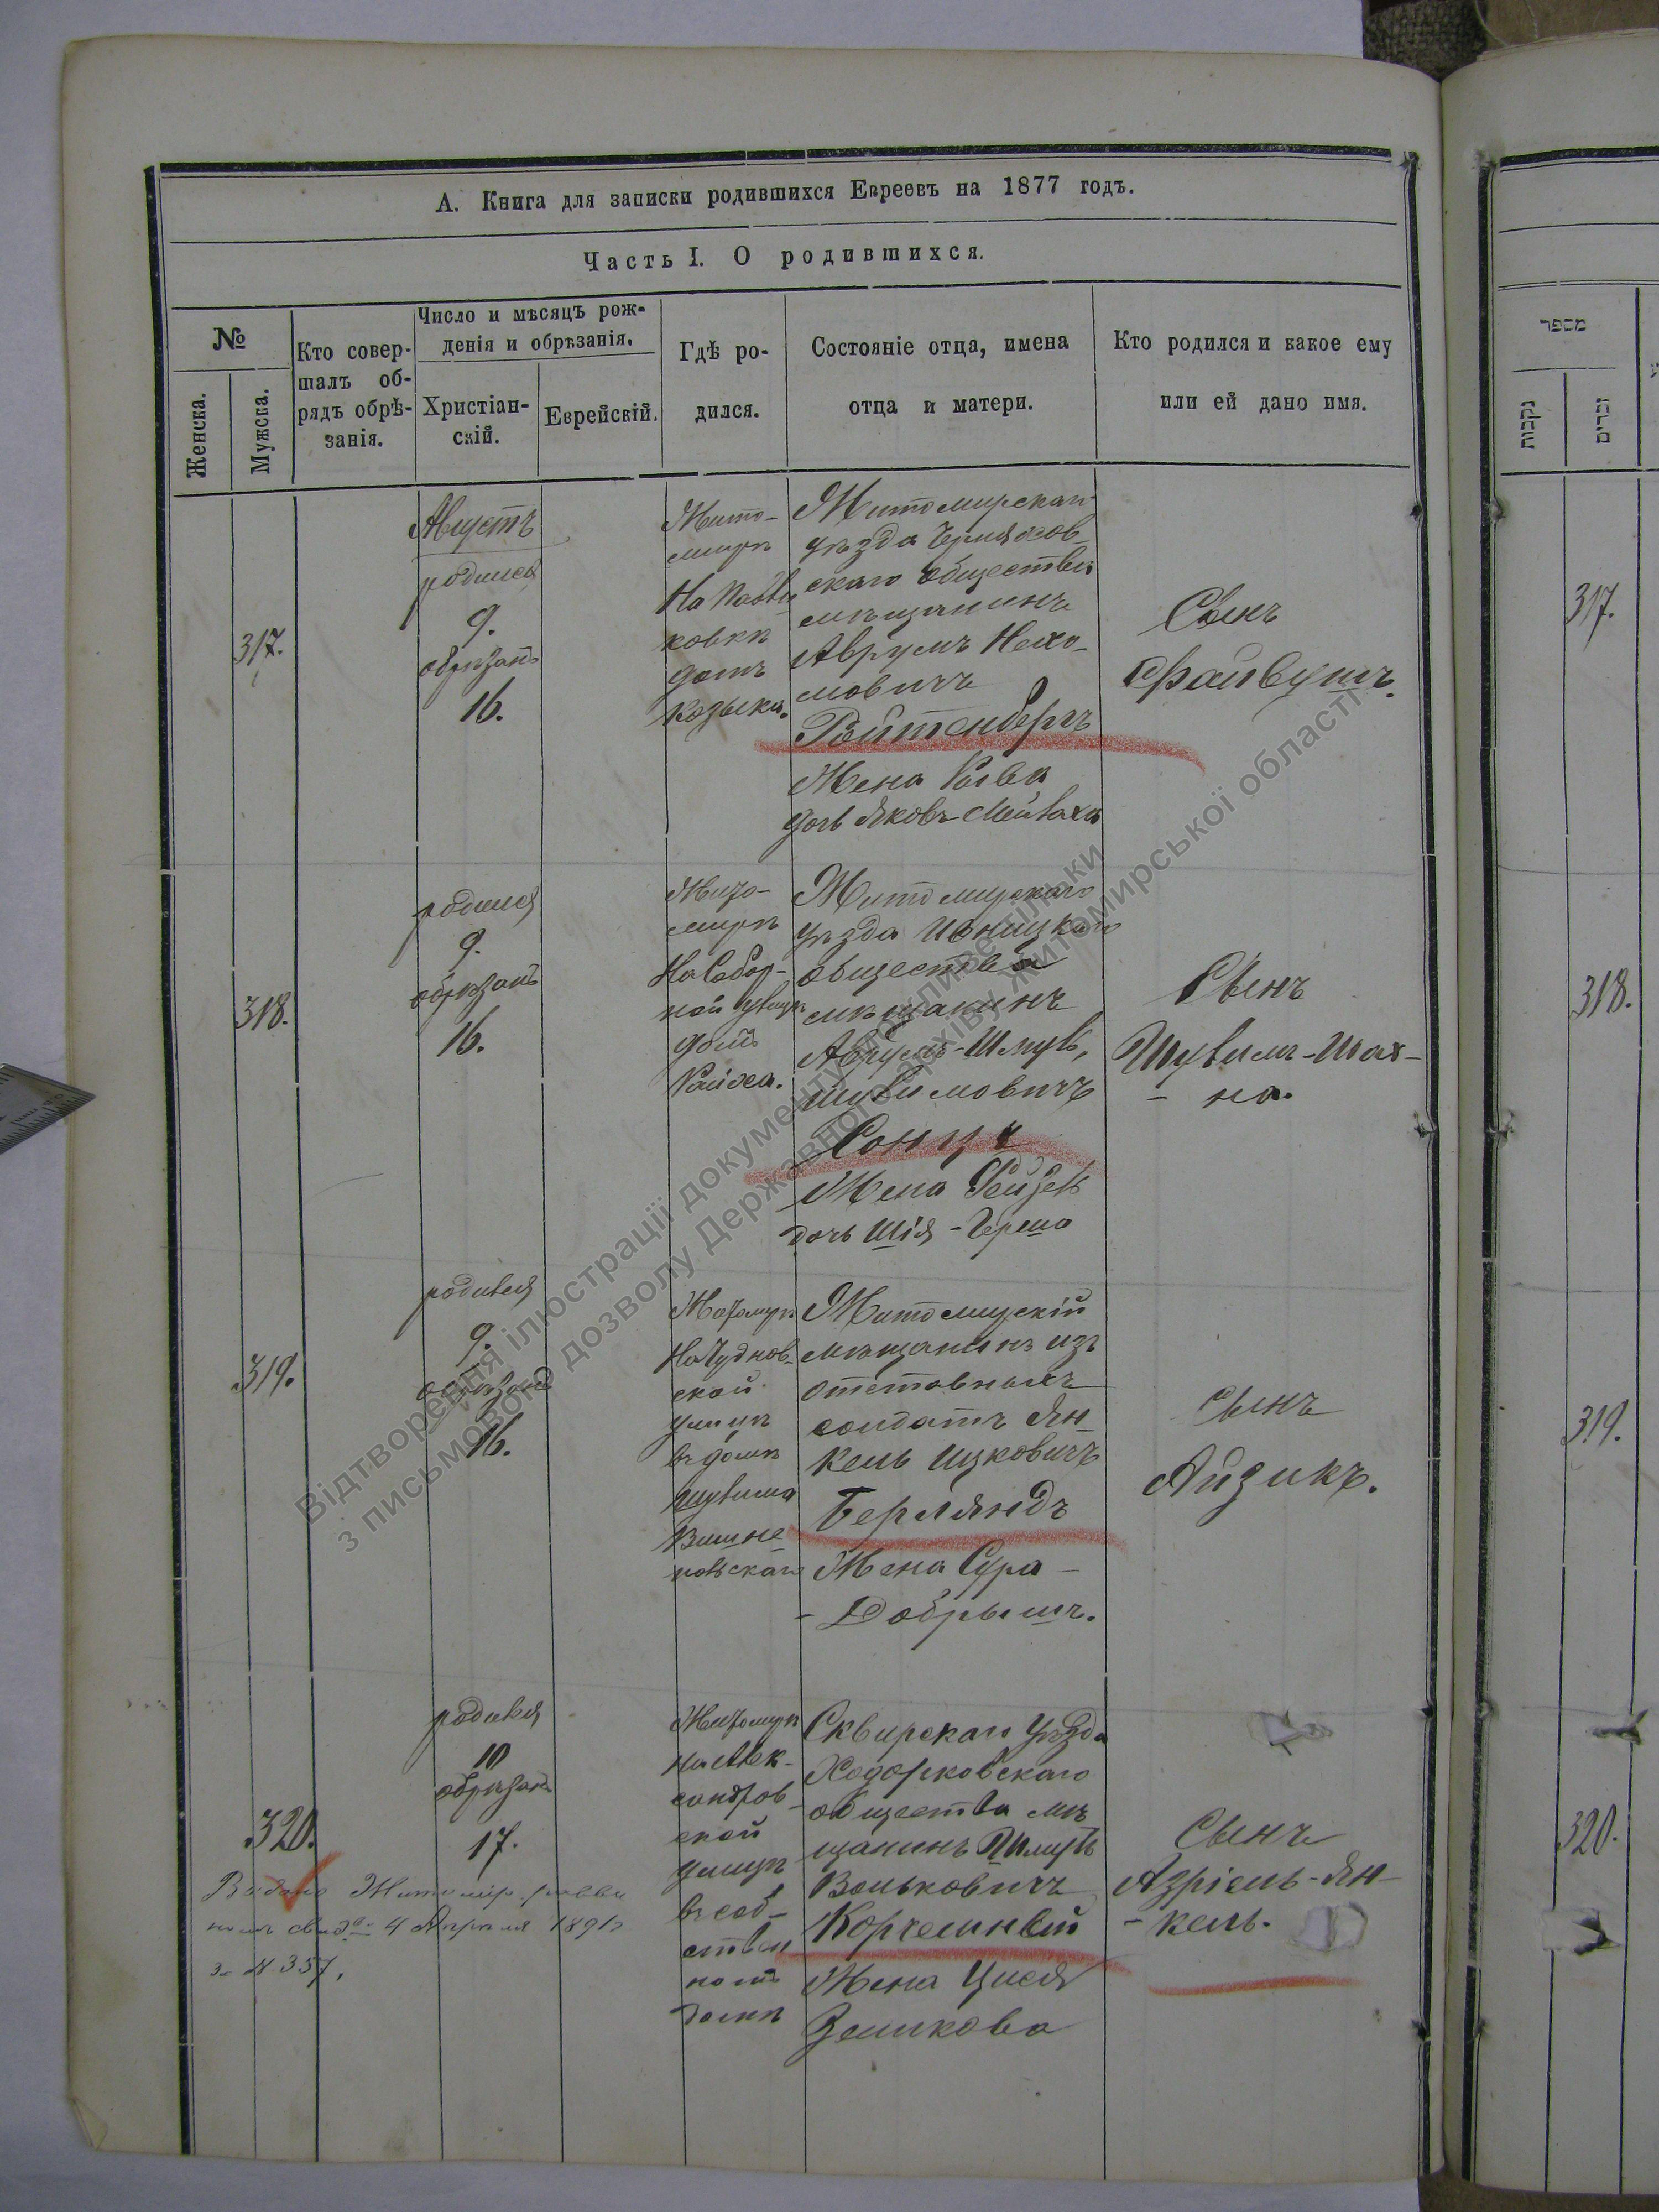 А. Книга для записки родившихся Евреевъ на 1877 годъ.
Часть I. О родившихся.
№
Женска.
Мужска.
Кто совер-
шалъ об-
рядъ обрѣ-
занія.
Число и мѣсяцъ рож-
денія и обрѣзанія.
Христіан-
скій.
Еврейскій.
Гдѣ ро-
дился.
Состояніе отца, имена
отца и матери.
Кто родился и какое ему
или ей дано имя.
317.
Августъ
родился
9.
обрѣзанъ
16.
Жито-
мирѣ
На
ковкѣ
домъ
Житомирскаго
уѣзда Черняхов-
скаго общества
мѣщанинъ
Аврумъ Нехо-
мовичъ
Ройтенбергъ
Жена
дочь Яковъ
Сынъ
Файвушъ.
318.
родился
9.
обрѣзанъ
16.
Жито-
мирѣ
На Собор-
ной улицѣ
домъ
Житомирскаго
уѣзда Ивницкаго
общества
мѣщанинъ
Аврумъ-Шмуль
Шулимовичъ
Жена Рейзель
дочь Шія-Герша
Сынъ
Шулимъ-Шах-
-на.
319.
родился
9.
обрѣзанъ
16.
Житомирѣ
На Чуднов-
ской
улицѣ
въ домѣ
Шулима
Вишне-
повскаго
Житомирскій
мѣщанинъ изъ
отставныхъ
солдатъ Ян-
кель Ицковичъ
Берляндъ
Жена Сура-
-Добрышъ.
Сынъ
Айзикъ.
320.
родился
10
обрѣзанъ
17.
Житомирѣ
на Алек-
сандров-
ской
улицѣ
въ соб-
ствен
номъ
домѣ
Сквирскаго уѣзда
Ходорковскаго
общества мѣ
щанинъ Шмуль
Вольковичъ
Корчемный
Жена Цися
Зеликова
Сынъ
Азріель-Ян-
-кель.
Выдано Житомір. равви
номъ свид. 4 Апрѣля 1891
за N 357.
מספר
נקבות
זכרים
317.
318.
319.
320.
Відтворення ілюстрації документу можливе тільки
з письмового дозволу Державного архіву Житомирської області